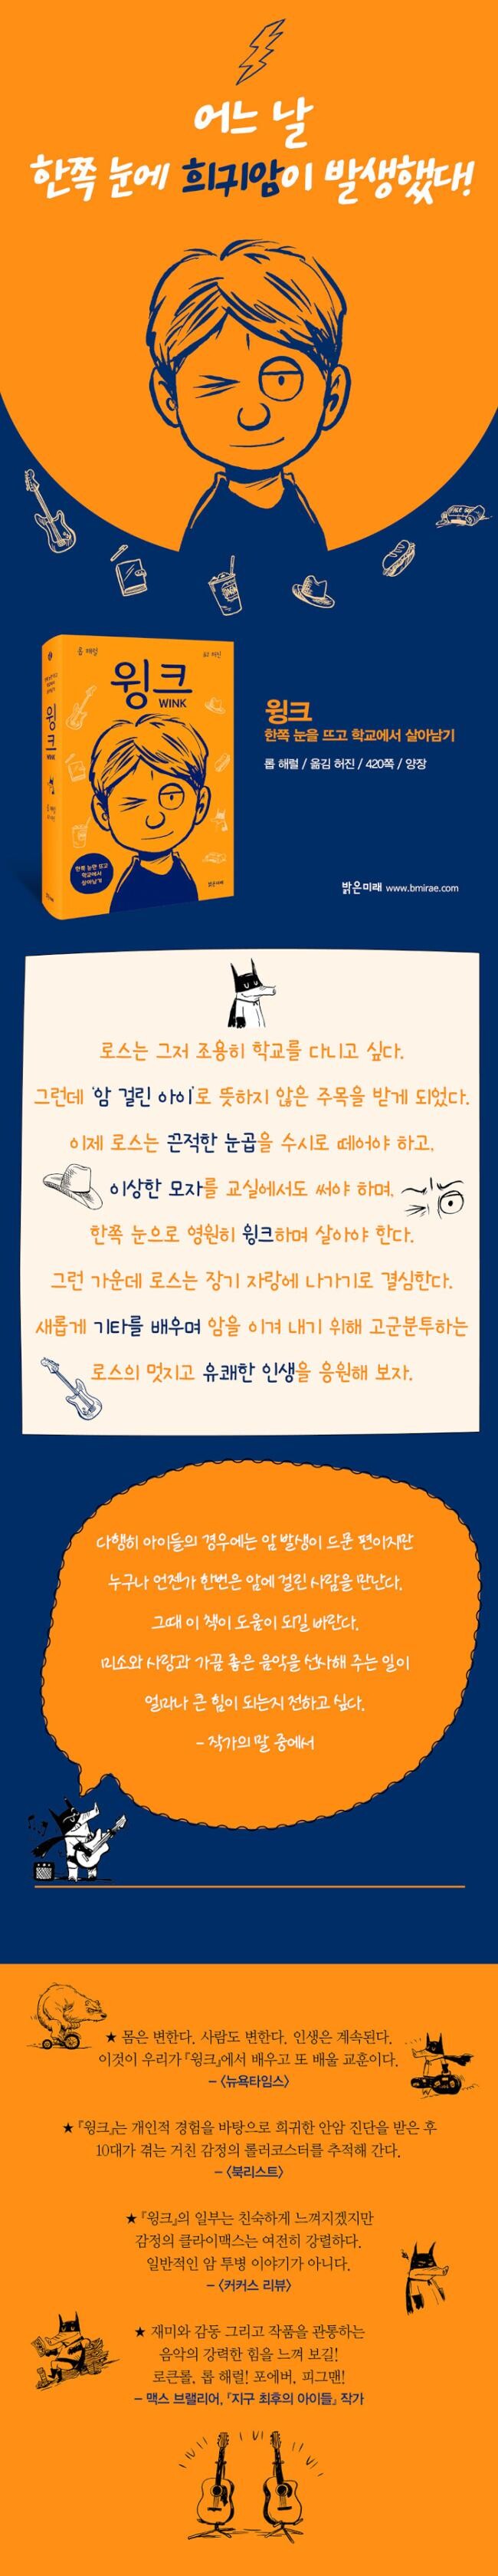 어느 날
한쪽 눈에 희귀암이 발생했다!
롭 해럴
옮김 허진
윙크
WINK
윙크
한쪽 눈만 뜨고
학교에서
살아남기
밝은미래
윙크
한쪽 눈을 뜨고 학교에서 살아남기
롭 해럴 / 옮김 허진 / 420쪽 / 양장
밝은미래 www.bmirae.com
로스는 그저 조용히 학교를 다니고 싶다.
그런데 '암 걸린 아이'로 뜻하지 않은 주목을 받게 되었다.
이제 로스는 끈적한 눈곱을 수시로 떼어야 하고,
이상한 모자를 교실에서도 써야 하며,
한쪽 눈으로 영원히 윙크하며 살아야 한다.
그런 가운데 로스는 장기 자랑에 나가기로 결심한다.
새롭게 기타를 배우며 암을 이겨 내기 위해 고군분투하는
로스의 멋지고 유쾌한 인생을 응원해 보자.
다행히 아이들의 경우에는 암 발생이 드문 편이지만
누구나 언젠가 한번은 암에 걸린 사람을 만난다.
그때 이 책이 도움이 되길 바란다.
미소와 사랑과 가끔 좋은 음악을 선사해 주는 일이
얼마나 큰 힘이 되는지 전하고 싶다.
- 작가의 말 중에서
★ 몸은 변한다. 사람도 변한다. 인생은 계속된다.
이것이 우리가 『윙크』에서 배우고 또 배울 교훈이다.
- 〈뉴욕타임스〉
★ 『윙크』는 개인적 경험을 바탕으로 희귀한 안암 진단을 받은 후
10대가 겪는 거친 감정의 롤러코스터를 추적해 간다.
- 〈북리스트〉
★ 『윙크』의 일부는 친숙하게 느껴지겠지만
감정의 클라이맥스는 여전히 강렬하다.
일반적인 암 투병 이야기가 아니다.
- 〈커커스 리뷰〉
★ 재미와 감동 그리고 작품을 관통하는
음악의 강력한 힘을 느껴 보길!
로큰롤, 롭 해럴! 포에버, 피그맨!
- 맥스 브랠리어, 『지구 최후의 아이들』 작가